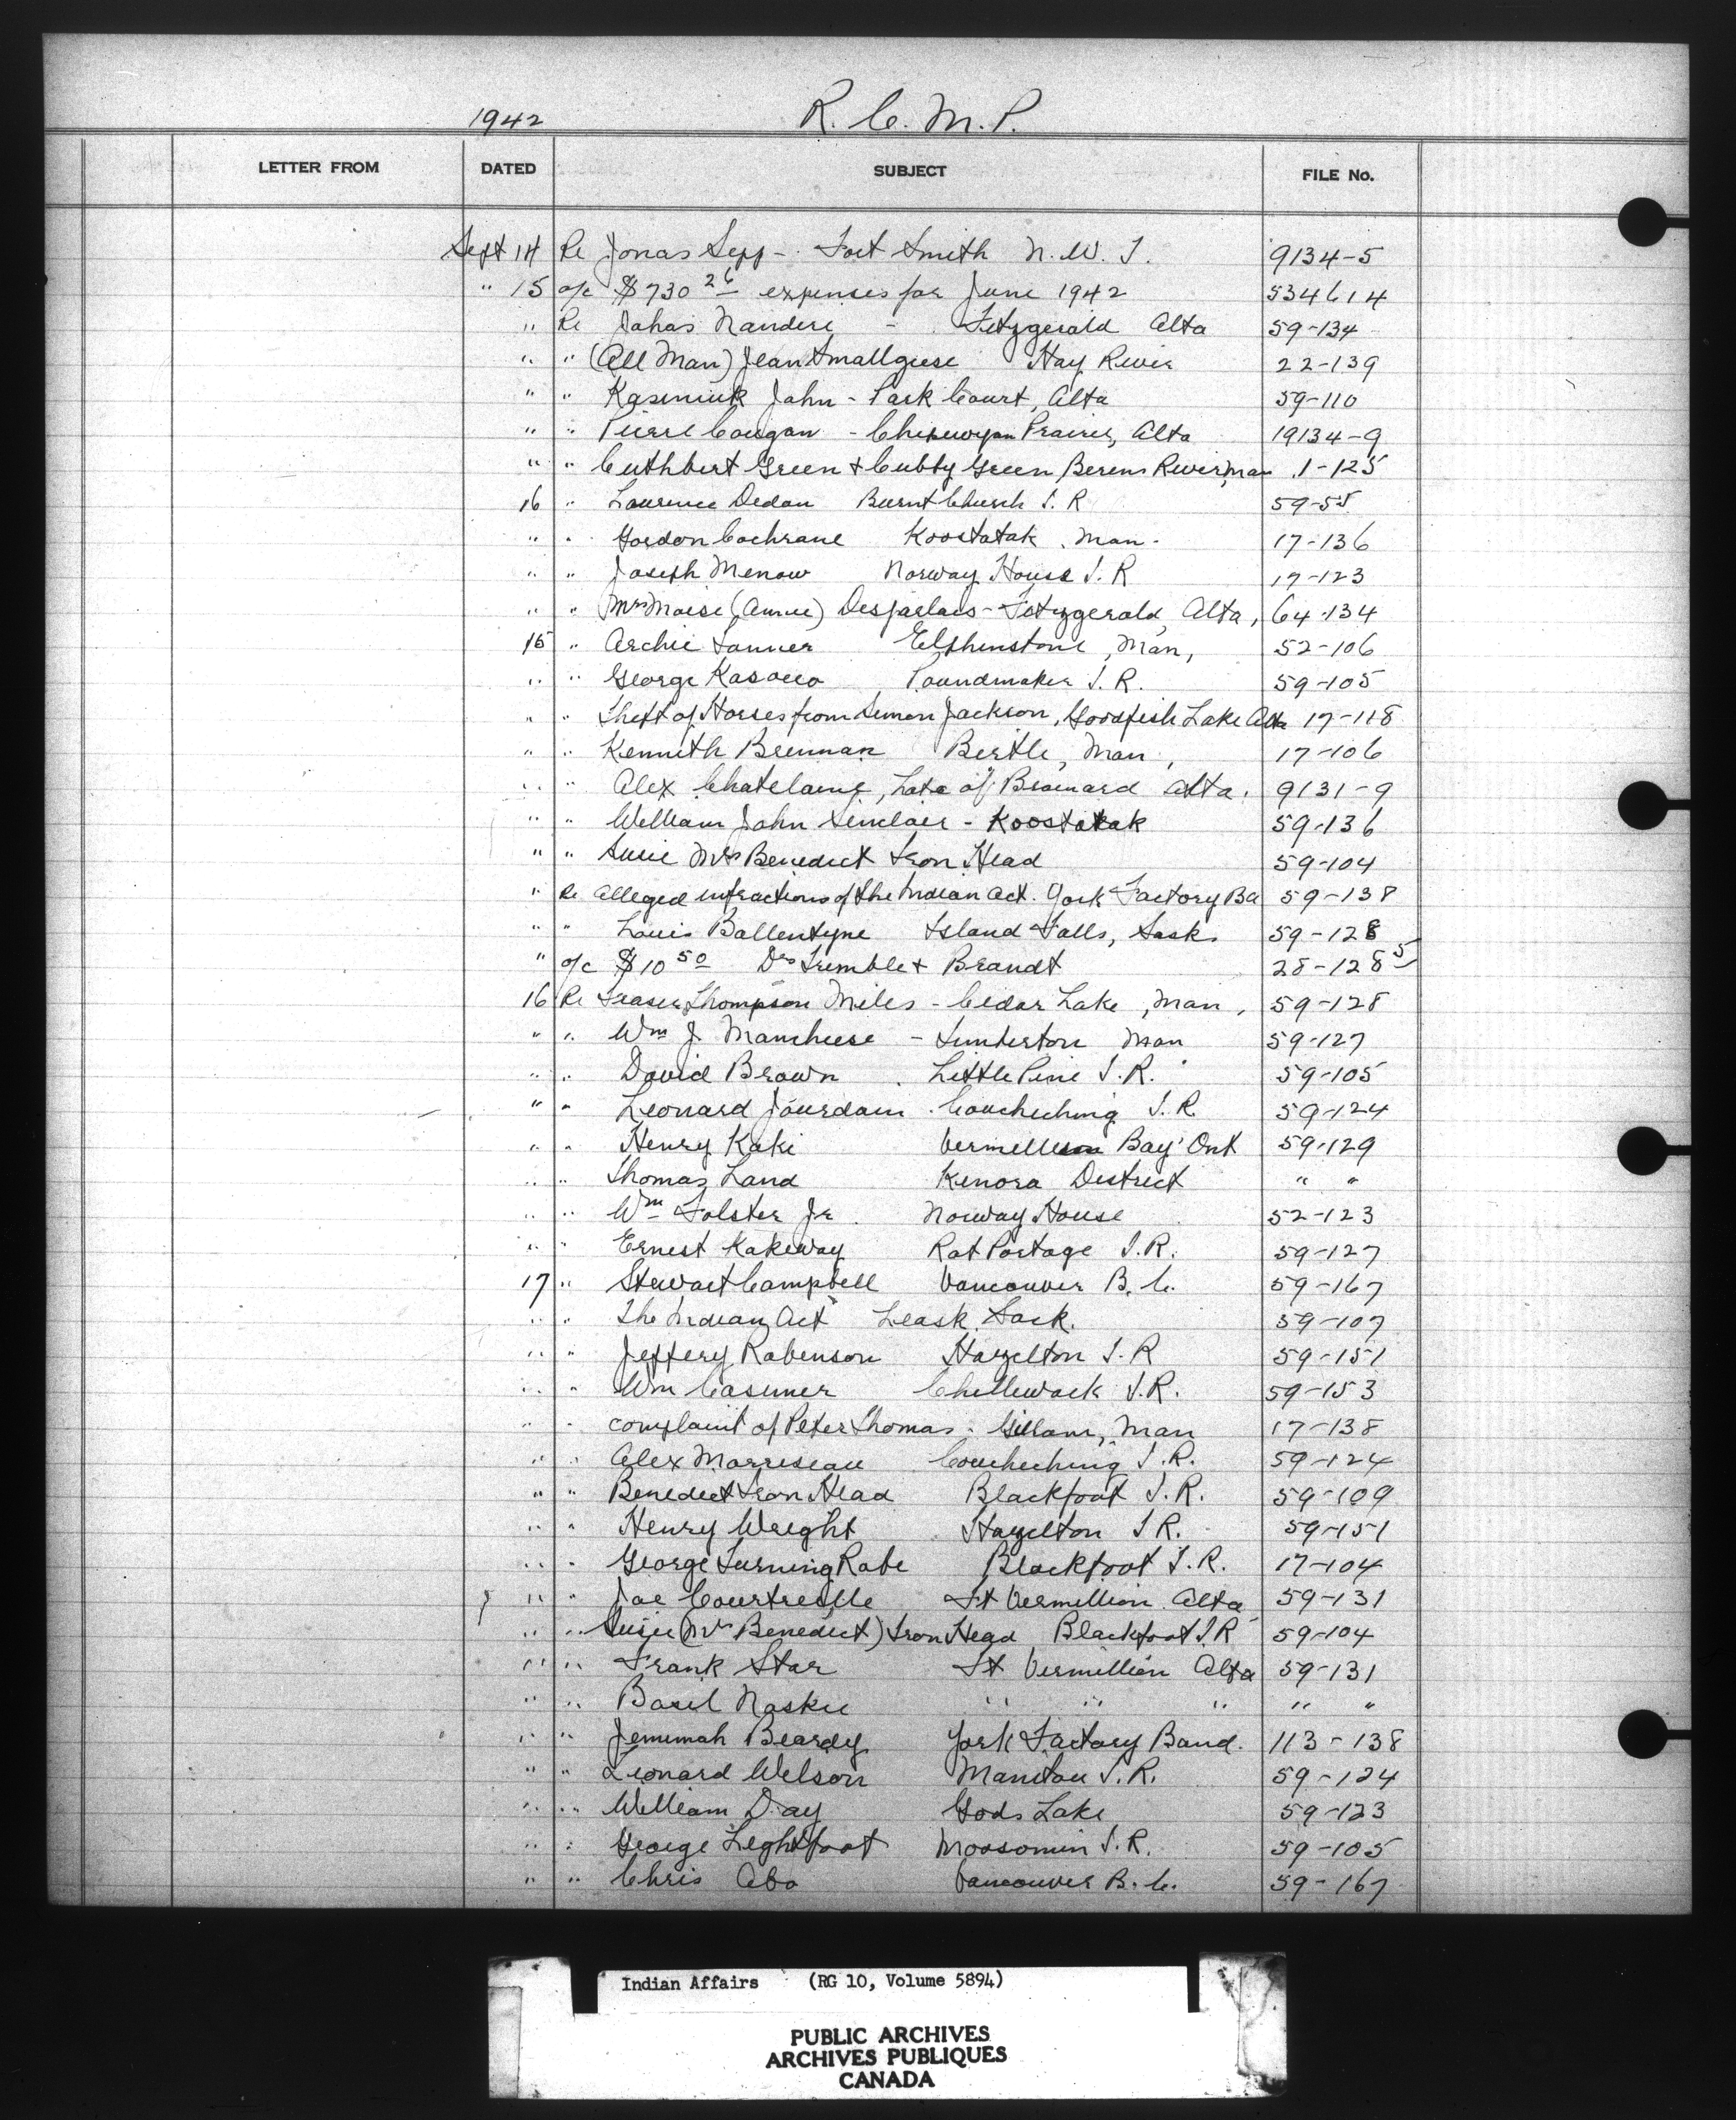 1942 R. C. M. P.
LETTER FROM DATED SUBJECT FILE No.
Sept 14 Re Jonas Sepp - Fort Smith N. W. T. 9134-5
" 15 a/c $730 26 expenses for June 1942 534614
" Re Johas Nandere - Fitzgerald Alta 59-134
" " (All Man) Jean Smallguse Hay River 22-139
" " Kaseniuk John - Park Court, Alta 59-110
" " Pierre Cougan - Chipewyan Prairie, Alta 19134-9
" " Cuthbert Green & Cubby Green Berens River, Man 1-125
16 " Laurence Dedan Burnt Church I. R 59-55
" " Gordon Cochrane Koostatak, Man. 17-136
" " Joseph Menow Norway House I. R 17-123
" " Mrs Moise (Annie) Desjarlais - Fitzgerald, Alta, 64-134
15 " Archie Tanner Elphinstone, Man, 52-106
" " George Kasocco Poundmaker I. R. 59-105
" " Theft of Horses from Simon Jackson, Goodfish Lake Alta 17-118
" " Kenneth Brennan Birtle, Man, 17-106
" " Alex Chatelaine, Late of Brainard Alta. 9131-9
" " William John Sinclair - Koostatak 59-136
" " Susie Mrs Benedict Iron Head 59-104
" Re Alleged infractions of the Indian Act. York Factory Ba 59-138
" " Louis Ballentyne Island Falls, Sask. 59-128
" a/c $10 50 Drs Trimble & Brandt 28-128 5
16 Re Fraser Thompson Miles - Cedar Lake, Man, 59-128
" " Wm J. Mancheese - Timberton Man 59-127
" " David Brown. Little Pine I. R. 59-105
" " Leonard Jourdain. Couchiching I. R. 59-124
" " Henry Kaki Vermillion Bay Ont 59-129
" " Thomas Land Kenora District " "
" " Wm Folster Jr. Norway House 52-123
" " Ernest Kakeway Rat Portage I. R. 59-127
17 " Stewart Campbell Vancouver B. C. 59-167
" " The Indian Act Leask, Sask. 59-107
" " Jeffery Robinson Hazelton I. R 59-151
" " Wm Casimer Chilliwack I. R. 59-153
" " complaint of Peter Thomas. Gillam, Man 17-138
" " Alex Morriseau Couchiching I. R. 59-124
" " Benedict Iron Head Blackfoot I. R. 59-109
" " Henry Wright Hazelton I R. 59-151
" " George Turning Robe Blackfoot I. R. 17-104
" " Joe Courtreille Ft Vermillion. Alta 59-131
" " Susie (Mrs Benedict) Iron Head Blackfoot I. R 59-104
" " Frank Star Ft Vermillion Alta 59-131
" " Basil Noskie " " " " "
" " Jemimah Beardy York Factory Band. 113-138
" " Leonard Wilson Manitou I. R. 59-124
" " William Day Gods Lake 59-123
" " George Lightfoot Moosomin I. R. 59-105
" " Chris Abo Vancouver B. C. 59-167
Indian Affairs (RG 10, Volume 5894)
PUBLIC ARCHIVES
ARCHIVES PUBLIQUES
CANADA